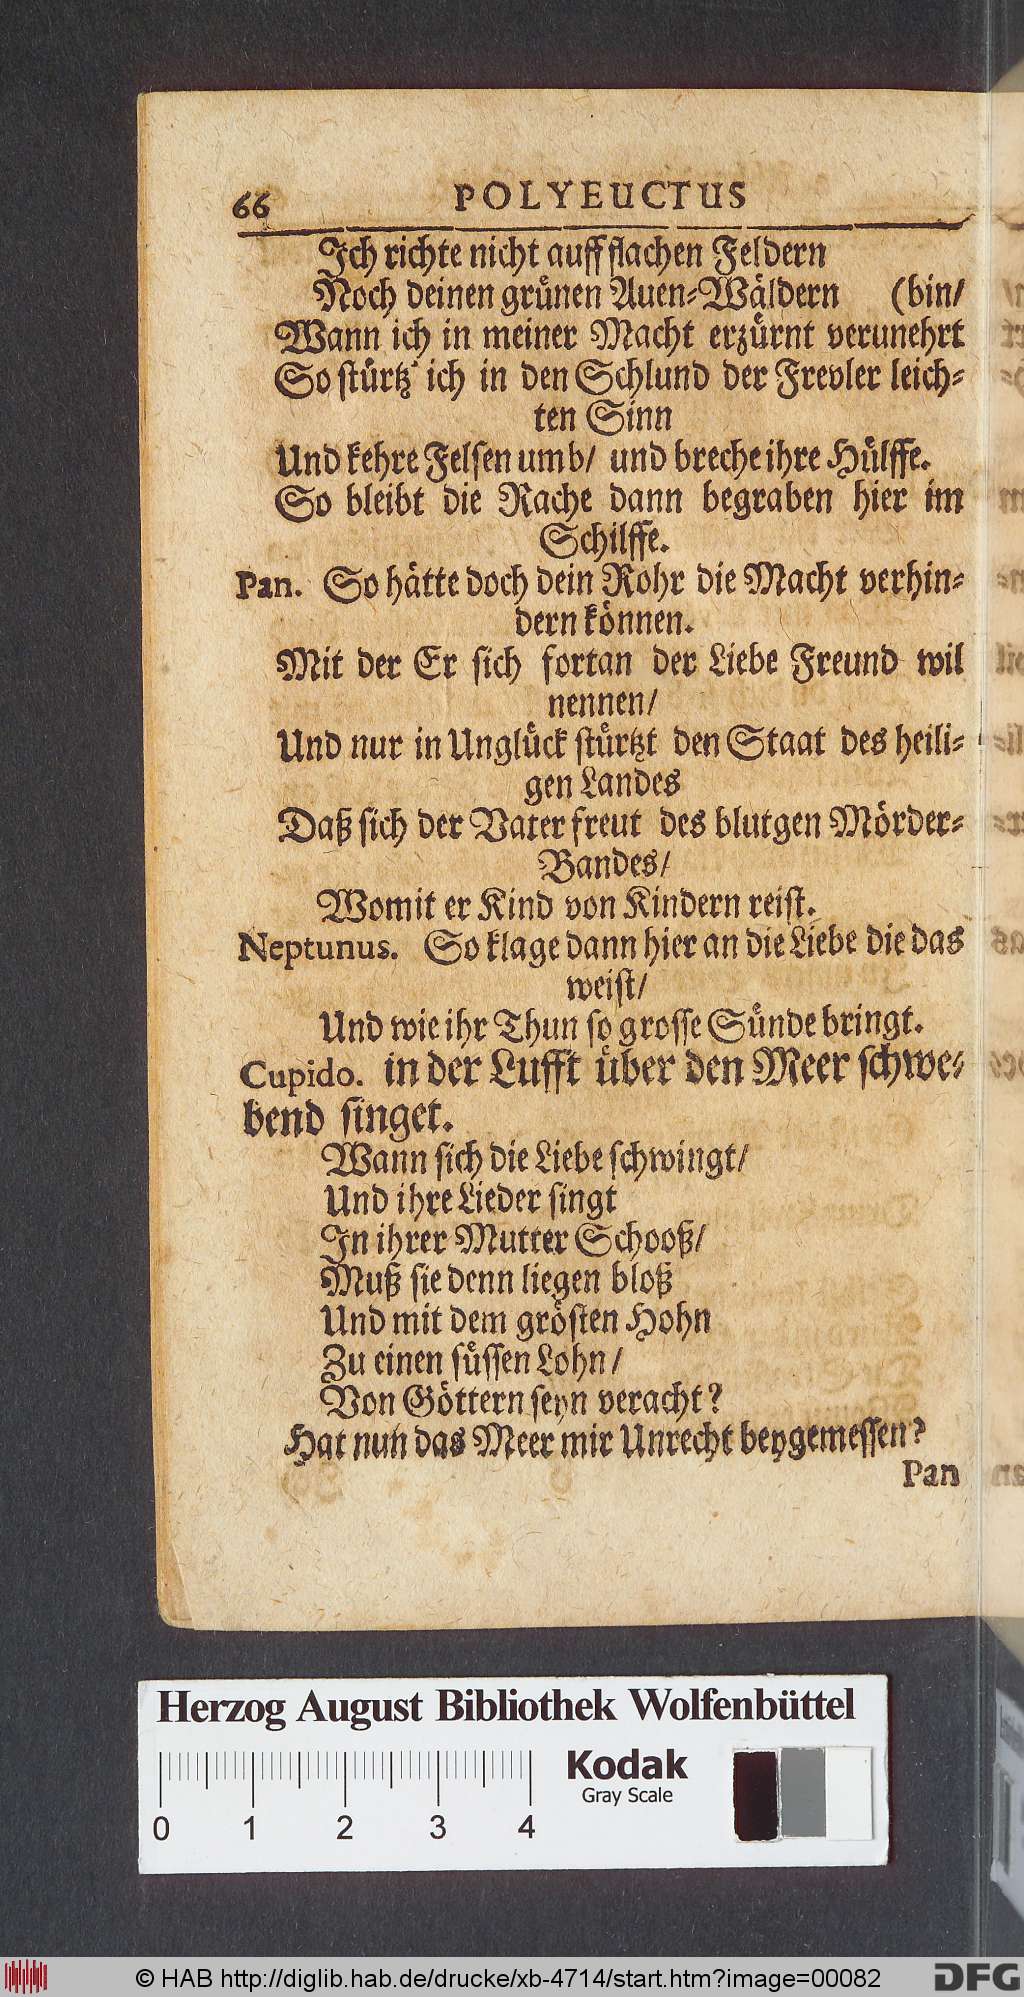 66 POLYEUCTUS
Ich richte nicht auff flachen Feldern
Noch deinen grünen Auen-Wäldern (bin/
Wann ich in meiner Macht erzürnt verunehrt
So stürtz' ich in den Schlund der Frevler leich-
ten Sinn
Und kehre Felsen umb/ und breche ihre Hülffe.
So bleibt die Rache dann begraben hier im
Schilffe.
Pan. So hätte doch dein Rohr die Macht verhin-
dern können.
Mit der Er sich fortan der Liebe Freund wil
nennen/
Und nur in Unglück stürtzt den Staat des heili-
gen Landes
Daß sich der Vater freut des blutgen Mörder-
Bandes/
Womit er Kind von Kindern reist.
Neptunus. So klage dann hier an die Liebe die das
weist/
Und wie ihr Thun so grosse Sünde bringt.
Cupido. in der Lufft über den Meer schwe-
bend singet.
Wann sich die Liebe schwingt/
Und ihre Lieder singt
In ihrer Mutter Schooß/
Muß sie denn liegen bloß
Und mit dem grösten Hohn
Zu einen süssen Lohn/
Von Göttern seyn veracht?
Hat nun das Meer mir Unrecht beygemessen?
Pan
Herzog August Bibliothek Wolfenbüttel
Kodak
Gray Scale
0 1 2 3 4
© HAB http://diglib.hab.de/drucke/xb-4714/start.htm?image=00082
DFG